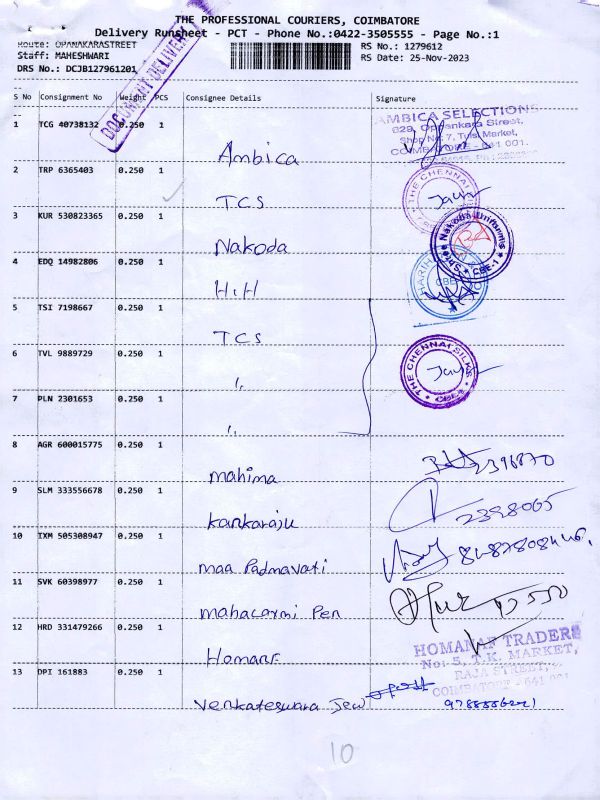 THE PROFESSIONAL COURIERS, COIMBATORE
Delivery Runsheet - PCT - Phone No.:0422-3505555 - Page No.:1
Route: OPANAKARASTREET
RS No.: 1279612
Staff: MAHESHWARI
RS Date: 25-Nov-2023
DRS No.: DCJB127961201
DOCUMENT DELIVERY
S No Consignment No Weight PCS Consignee Details Signature
1 TCG 40738132 0.250 1 Ambica
AMBICA SELECTIONS
Street,
Shop No. 7, Market,
641 001.
2 TRP 6365403 0.250 1 TCS
THE CHENNAI
3 KUR 530823365 0.250 1 Nakoda
Shree Nakoda Uniforms
CBE-1
4 EDQ 14982806 0.250 1 H.H
CBE
5 TSI 7198667 0.250 1 TCS
6 TVL 9889729 0.250 1 "
THE CHENNAI SILKS
CBE-1
7 PLN 2301653 0.250 1 "
8 AGR 600015775 0.250 1 mahima
2396870
9 SLM 333556678 0.250 1 kankaraju
2398065
10 IXM 505308947 0.250 1 maa Padmavati
11 SVK 60398977 0.250 1 mahalaxmi Pen
12 HRD 331479266 0.250 1
HOMANAF TRADERS
No: 5, T.K. MARKET,
RAJA STREET,
COIMBATORE - 641 001
13 DPI 161883 0.250 1 Venkateswara Jew
10